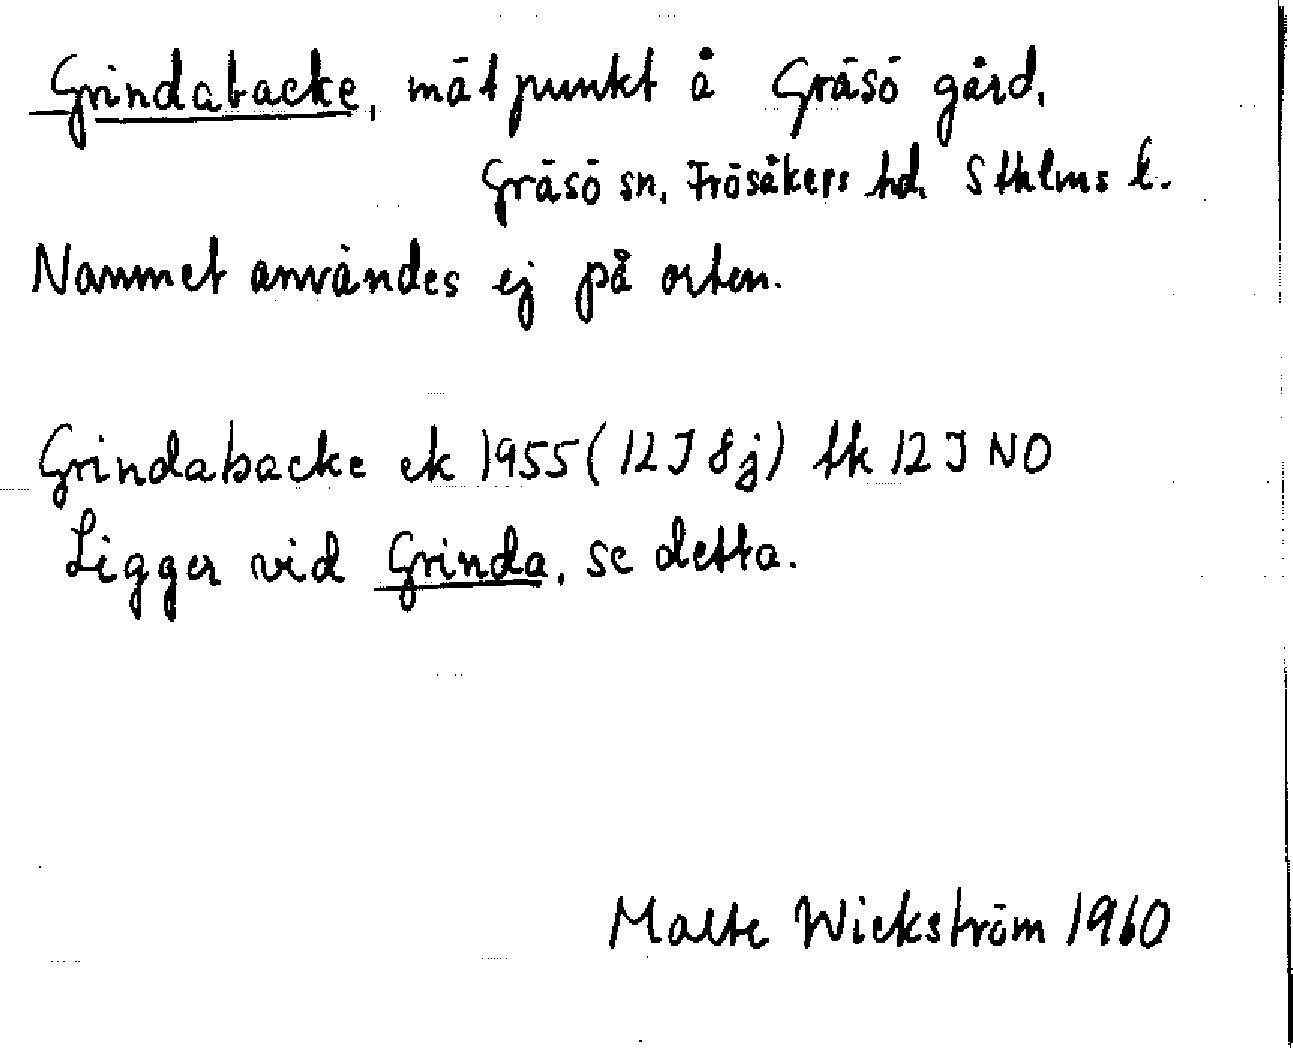 Grindabacke, mätpunkt å Gräsö gård,
Gräsö sn, Frösåkers hd, Sthlms l.
Namnet användes ej på orten.
Grindabacke ek 1955 (12J 8j) tk 12J NO
Ligger vid Grinda, se detta.
Malte Wickström 1960